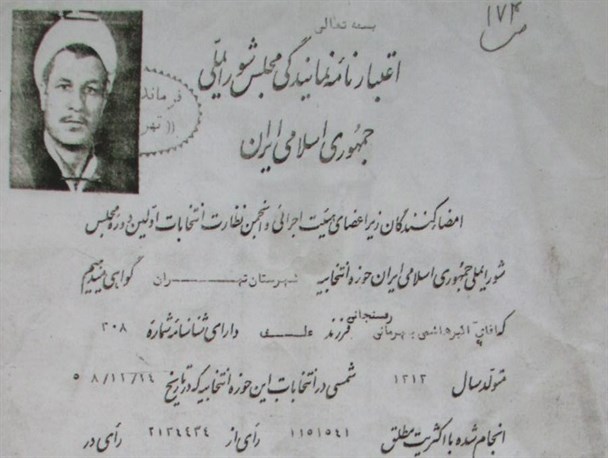 بسمه تعالی
۱۷۴
اعتبارنامه نمایندگی مجلس شورای ملی
جمهوری اسلامی ایران
فرماندا
تهر
امضاکنندگان زیر اعضای هیئت اجرائی و انجمن نظارت انتخابات اولین دوره مجلس
شورای ملی جمهوری اسلامی ایران حوزه انتخابیه شهرستان تهران گواهی میدهیم
که آقای اکبر هاشمی بهرمانی رفسنجانی فرزند علی دارای شناسنامه شماره ۳۰۸
متولد سال ۱۳۱۳ شمسی در انتخابات این حوزه انتخابیه که در تاریخ ۵۸/۱۲/۲۴
انجام شده با اکثریت مطلق ۱۱۵۱۵۴۱ رأی از ۲۱۳۴۴۳۴ رأی در